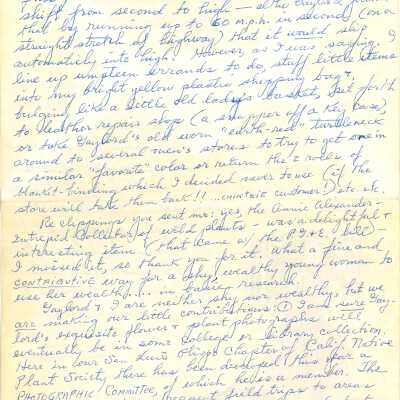 shift from second to high - also
that by running up to 60 m.p.h. in second (on a
straight stretch of highway) that it would slip
automaticly into high. However, as I was saying. I
line up umpteen errands to do, stuff little items
into my bright yellow plastic shopping bag,
bulging like a little old lady's basket, set forth
to leather repair shop (a snapper off a key case)
or take Gaylord's old worn "earth-red" turtleneck
around to several men's stores to try to get one in
a similar "favorite" color or return the 2 rolls of
blanket-binding which I decided never to use (if the
store will take them back!! ... customer) etc. etc.
Re clippings you sent me: yes, the Annie Alexander -
Intrepid Collector of wild plants - was a delightful &
interesting item (that came w/ the P.G.&E. bill) -
I missed it, so thank you for it. What a fine and
CONTRIBUTIVE way for a shy, wealthy young woman to
use her wealthy .... in basic research.
Gaylord & I are neither shy nor wealthy, but we
are making our little contributions. I am sure Gay-
lord's exquisite flower & plant photographs will
eventually be in some College or library collection.
Here in our San Luis Obispo Chapter of Calif. Native
Plant Society there has been developed this year a
PHOTOGRAPHIC COMMITTEE, of which he is a member. The
frequent field trips to areas